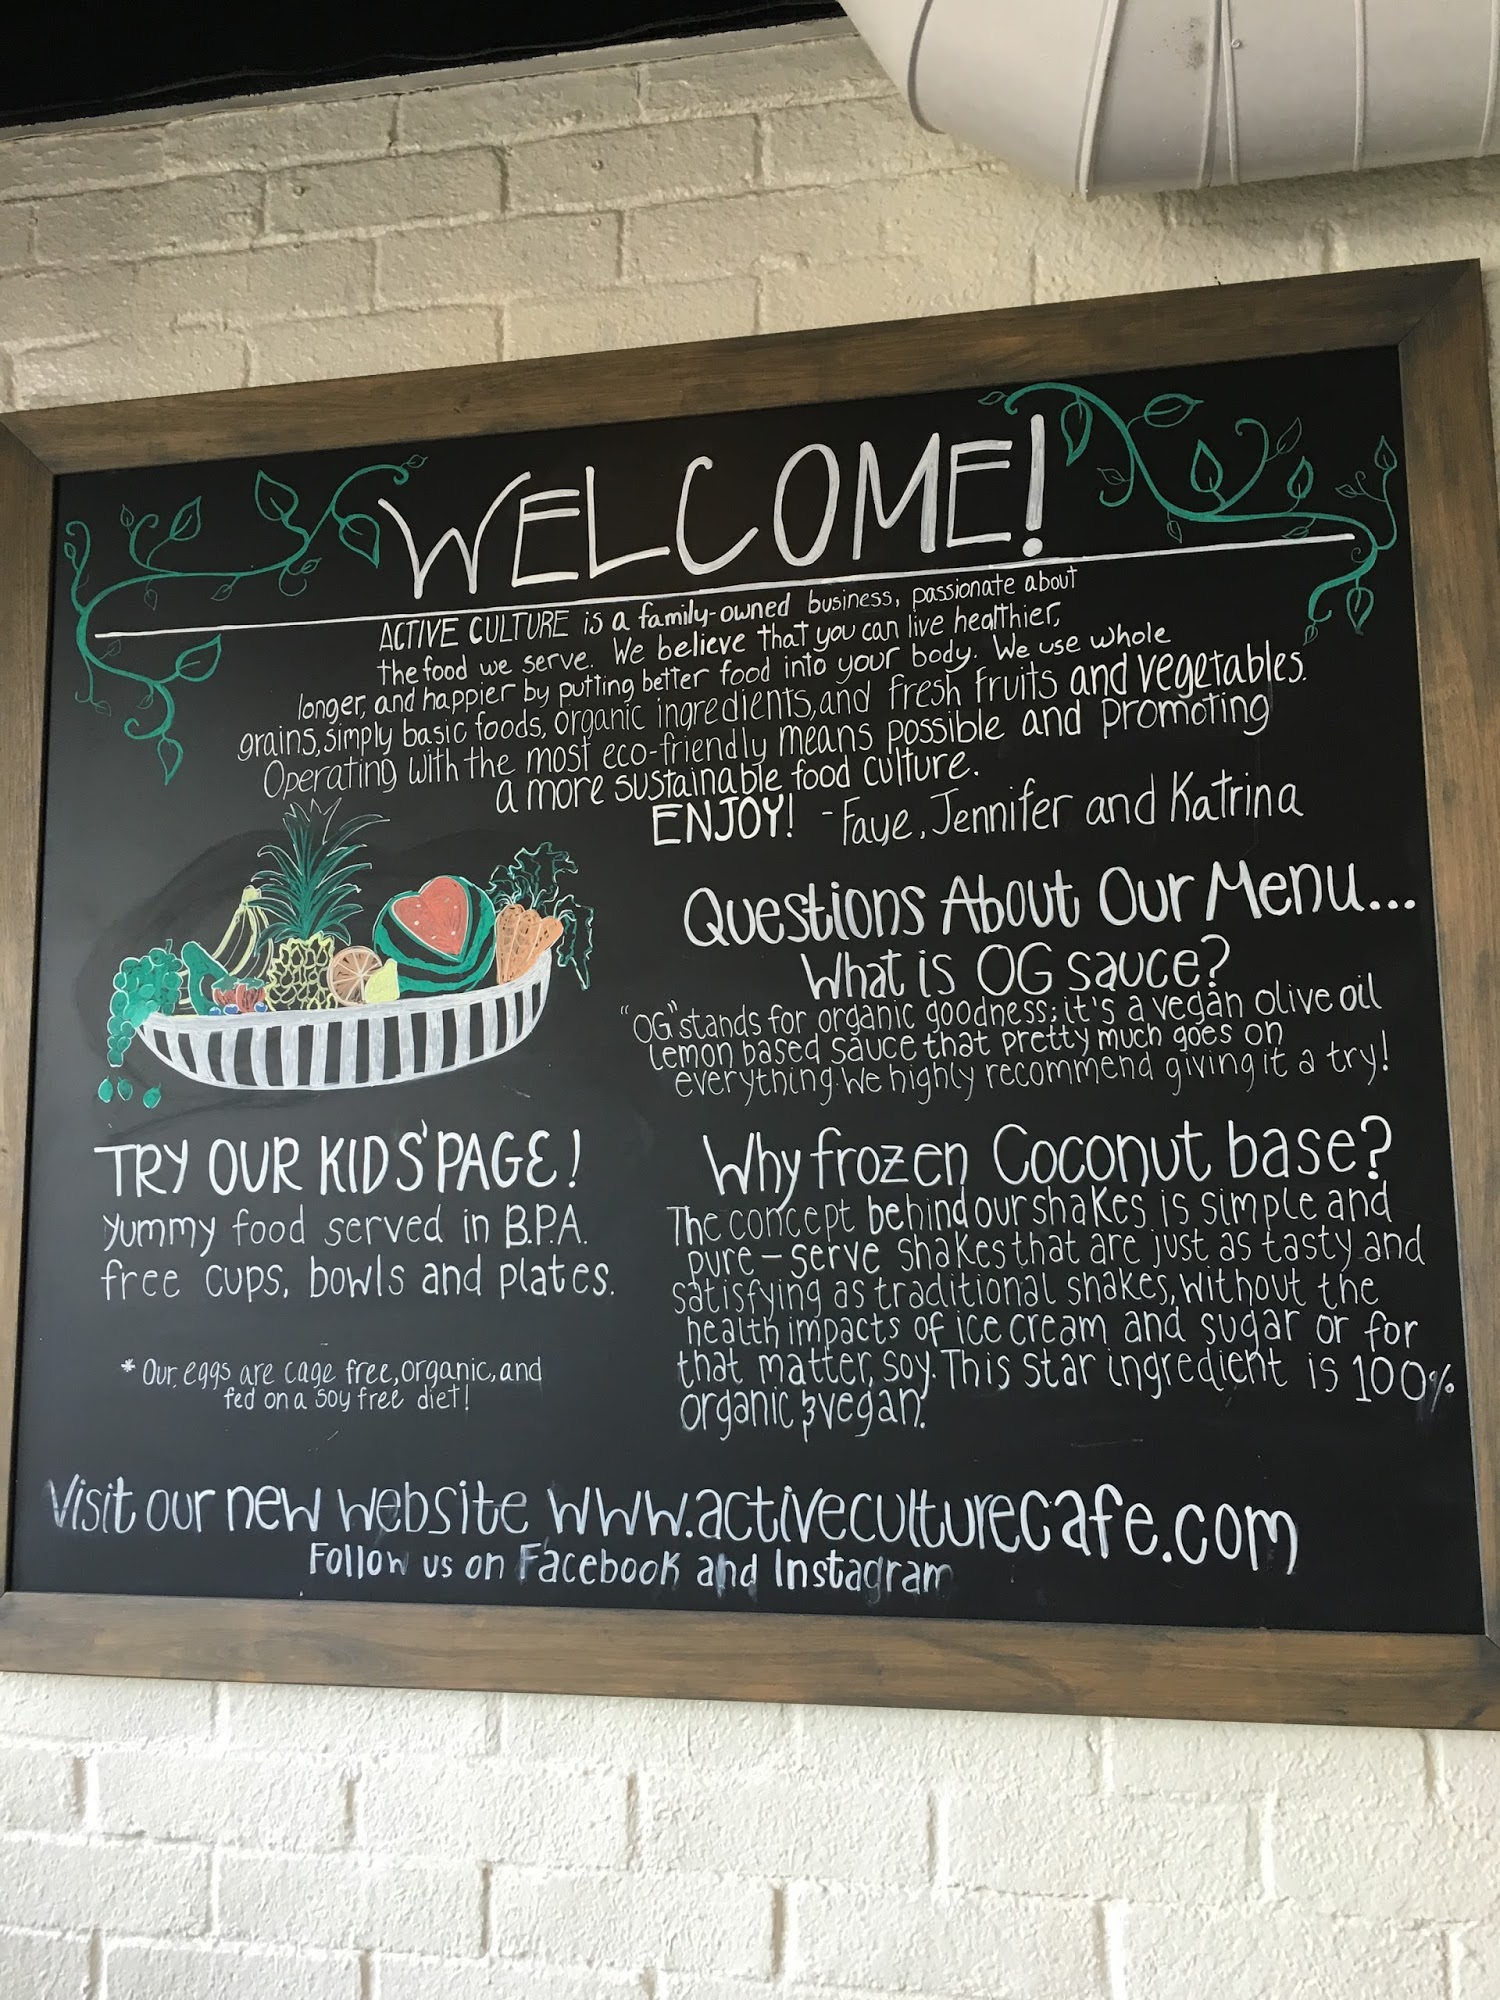 WELCOME!
ACTIVE CULTURE is a family-owned business, passionate about
the food we serve. We believe that you can live healthier,
longer, and happier by putting better food into your body. We use whole
grains, simply basic foods, organic ingredients, and fresh fruits and vegetables.
Operating with the most eco-friendly means possible and promoting
a more sustainable food culture.
ENJOY! - Faye, Jennifer and Katrina
Questions About Our Menu...
What is OG sauce?
"OG" stands for organic goodness; it's a vegan olive oil
lemon based sauce that pretty much goes on
everything. We highly recommend giving it a try!
TRY OUR KIDS' PAGE!
yummy food served in B.P.A.
free cups, bowls and plates.
* Our eggs are cage free, organic, and
fed on a soy free diet!
Why frozen Coconut base?
The concept behind our shakes is simple and
pure - serve shakes that are just as tasty and
satisfying as traditional shakes, without the
health impacts of ice cream and sugar or for
that matter, soy. This star ingredient is 100%
organic & vegan.
Visit our new website www.activeculturecafe.com
Follow us on Facebook and Instagram